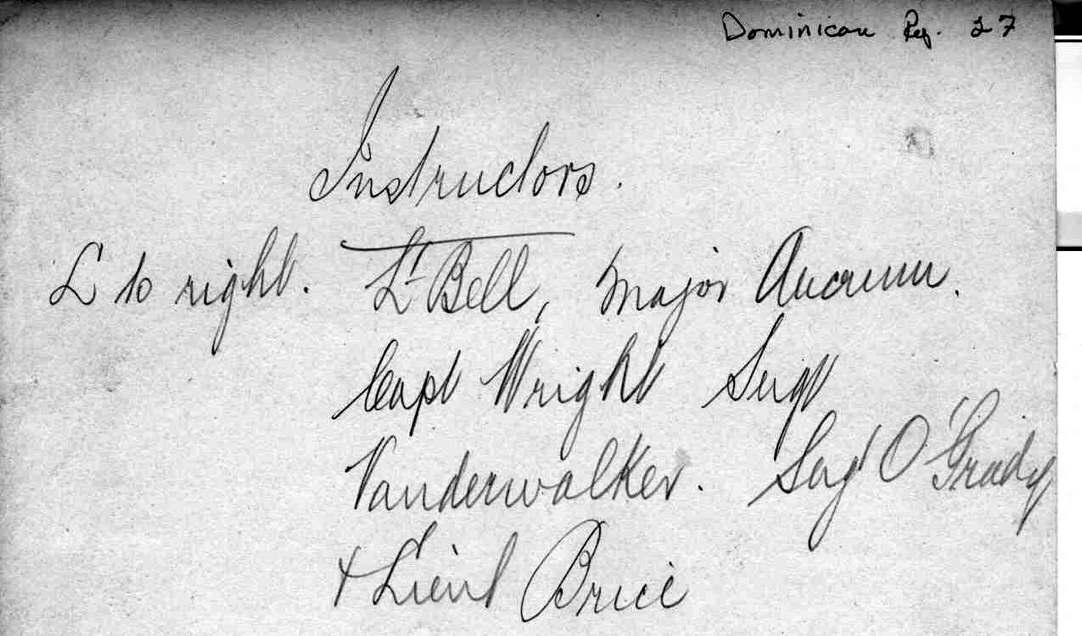 Dominican Rep. 27
Instructors.
L to right. Lt Bell, Major Ancrum.
Capt Wright Sergt
Vanderwalker. Serg't O'Grady
+ Lieut Brice